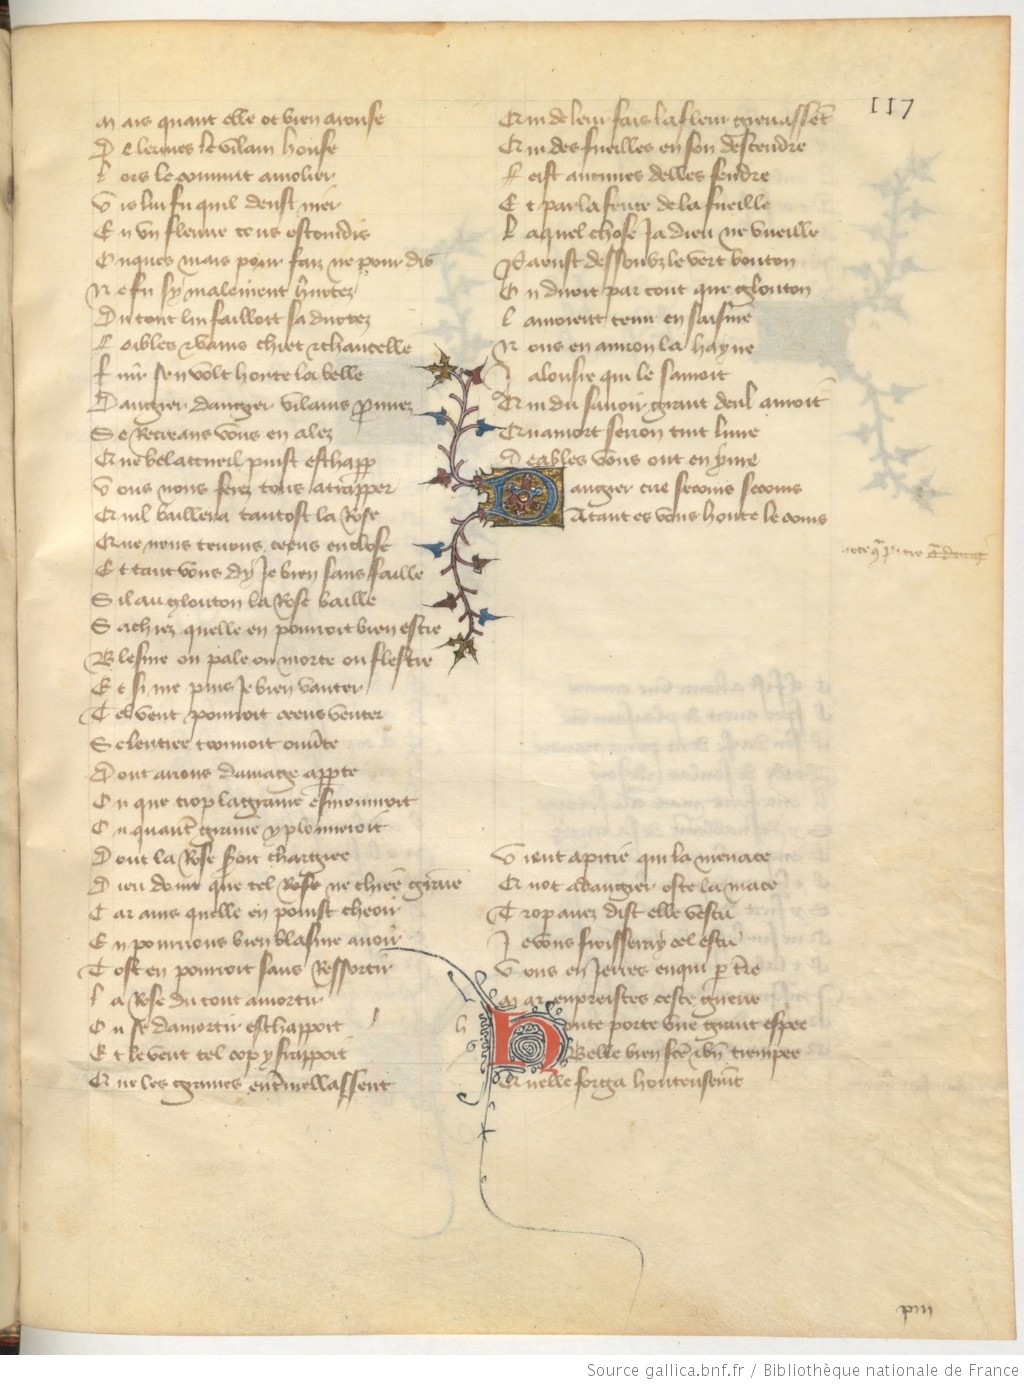 117
Mais quant elle ot bien arouse
De lermes le vilain house
Lors le convint amolier
Vis lui fu quil deust nier
En vn fleuue tous estourdis
Onques mais pour faiz ne pour dis
Ne fu sy malement hurtez
Du tout lui failloit sa durtez
Foibles et vains chiet et chancelle
Fuir sen volt honte la belle
Dangier dangier vilains prouuez
Se Recreans vous en alez
Que belacueil puist eschapp
Vous nous ferez tous atrapper
Quil baillera tantost la Rose
Que nous tenons ceens enclose
Et tant vous dy Je bien sans faille
Sil au glouton la Rose baille
Sachiez quelle en pourroit bien estre
Blesme ou pale ou morte ou flestre
Et si me puis Je bien vanter
Tel vent pourroit ceens venter
Se lentree trouuoit ouuerte
Dont auons damage apperte
Ou que trop la graine esmouuroit
Ou quautre graine y plouueroit
Dont la Rose seroit chargiee
Dieu doint que tel Rose ne chiee graine
Car ains quelle en poinst cheoir
En pourrions bien blasme auoir
Tost en pourroit sans Ressortir
La Rose du tout amortir
Ou se damortir eschappoit
Et le vent tel cop y frappoit
Que les graines entremellassent
Qui de leur fais la fleur greuassent
Qui des fueilles en son descendre
Feist aucunes delles fendre
Et par la fente de la fueille
Laquel chose Ja dieu ne vueille
Parenst dessoubz le vert bouton
On diroit par tout que glouton
Lauroient tenu en saisine
Nous en aurion la hayne
Jalousie qui le sauroit
Qui du sauoir grant deul auroit
Qua mort serion tuit liure
Deables vous ont en yure
Dangier crie secours secours
Atant es vous honte le cours
Vient a pitie qui la menace
Trop auez dist elle vescu
Je vous froisseray cel escu
Vous en Jerres enqui par terre
Mar enpreistes ceste guerre
h
Honte porte vne grant espee
Belle bien fete et bien trempee
Quelle forga honteusement